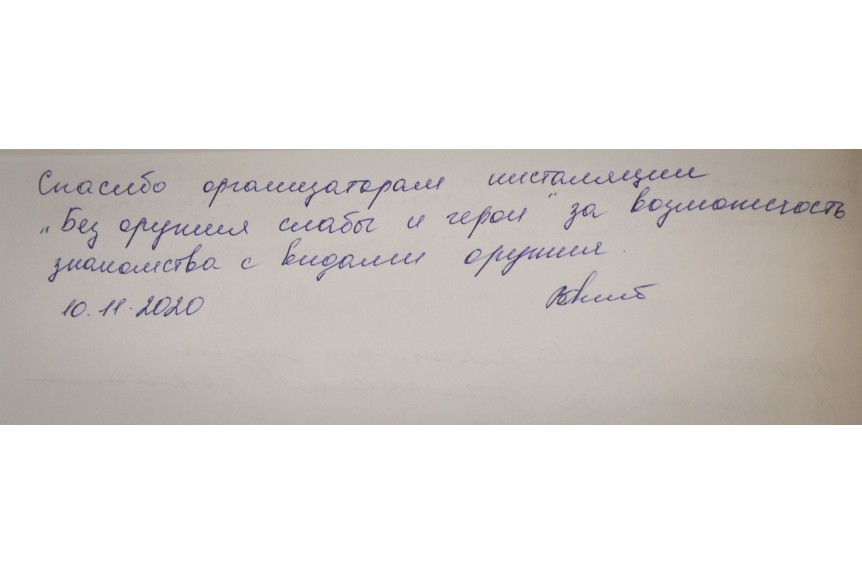 Спасибо организаторам инсталляции
„Без оружия слабы и герои" за возможность
знакомства с видами оружия.
10.11.2020